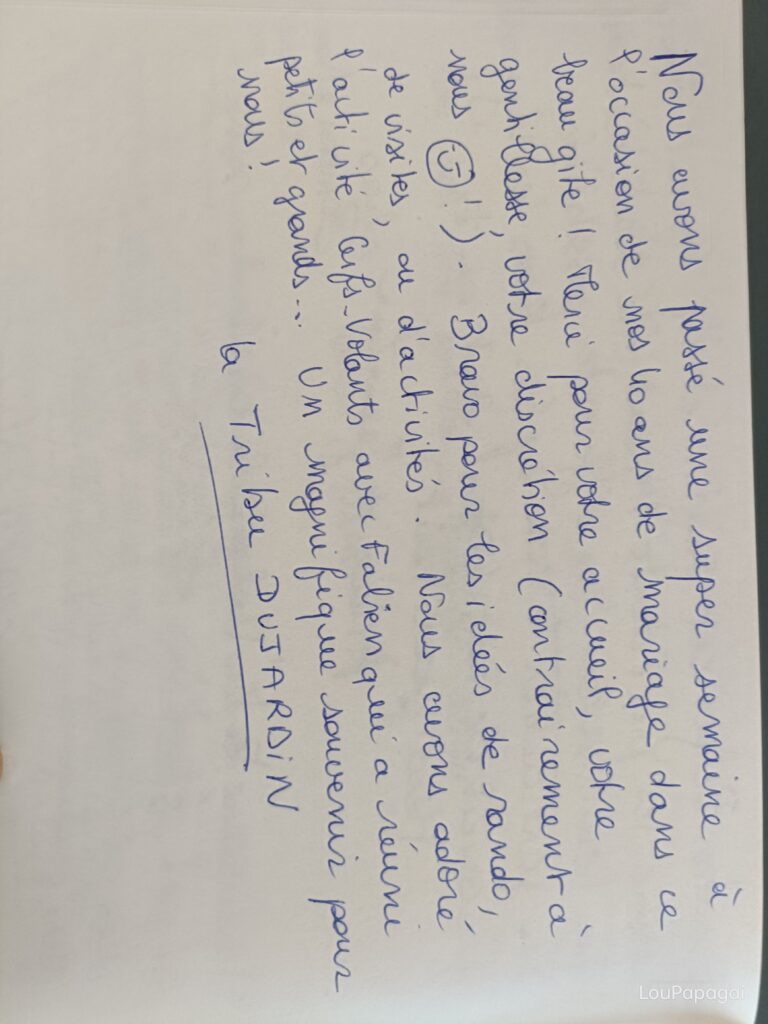 Nous avons passé une super semaine à
l'occasion de nos 40 ans de mariage dans ce
beau gîte! Merci pour votre accueil, votre
gentillesse, votre discrétion (contrairement à
nous ☺!). Bravo pour les idées de rando,
de visites, ou d'activités. Nous avons adoré
l'activité Cerfs-Volants avec Fabien qui a réuni
petits et grands... Un magnifique souvenir pour
nous!
la Tribu DUJARDiN
LouPapagai